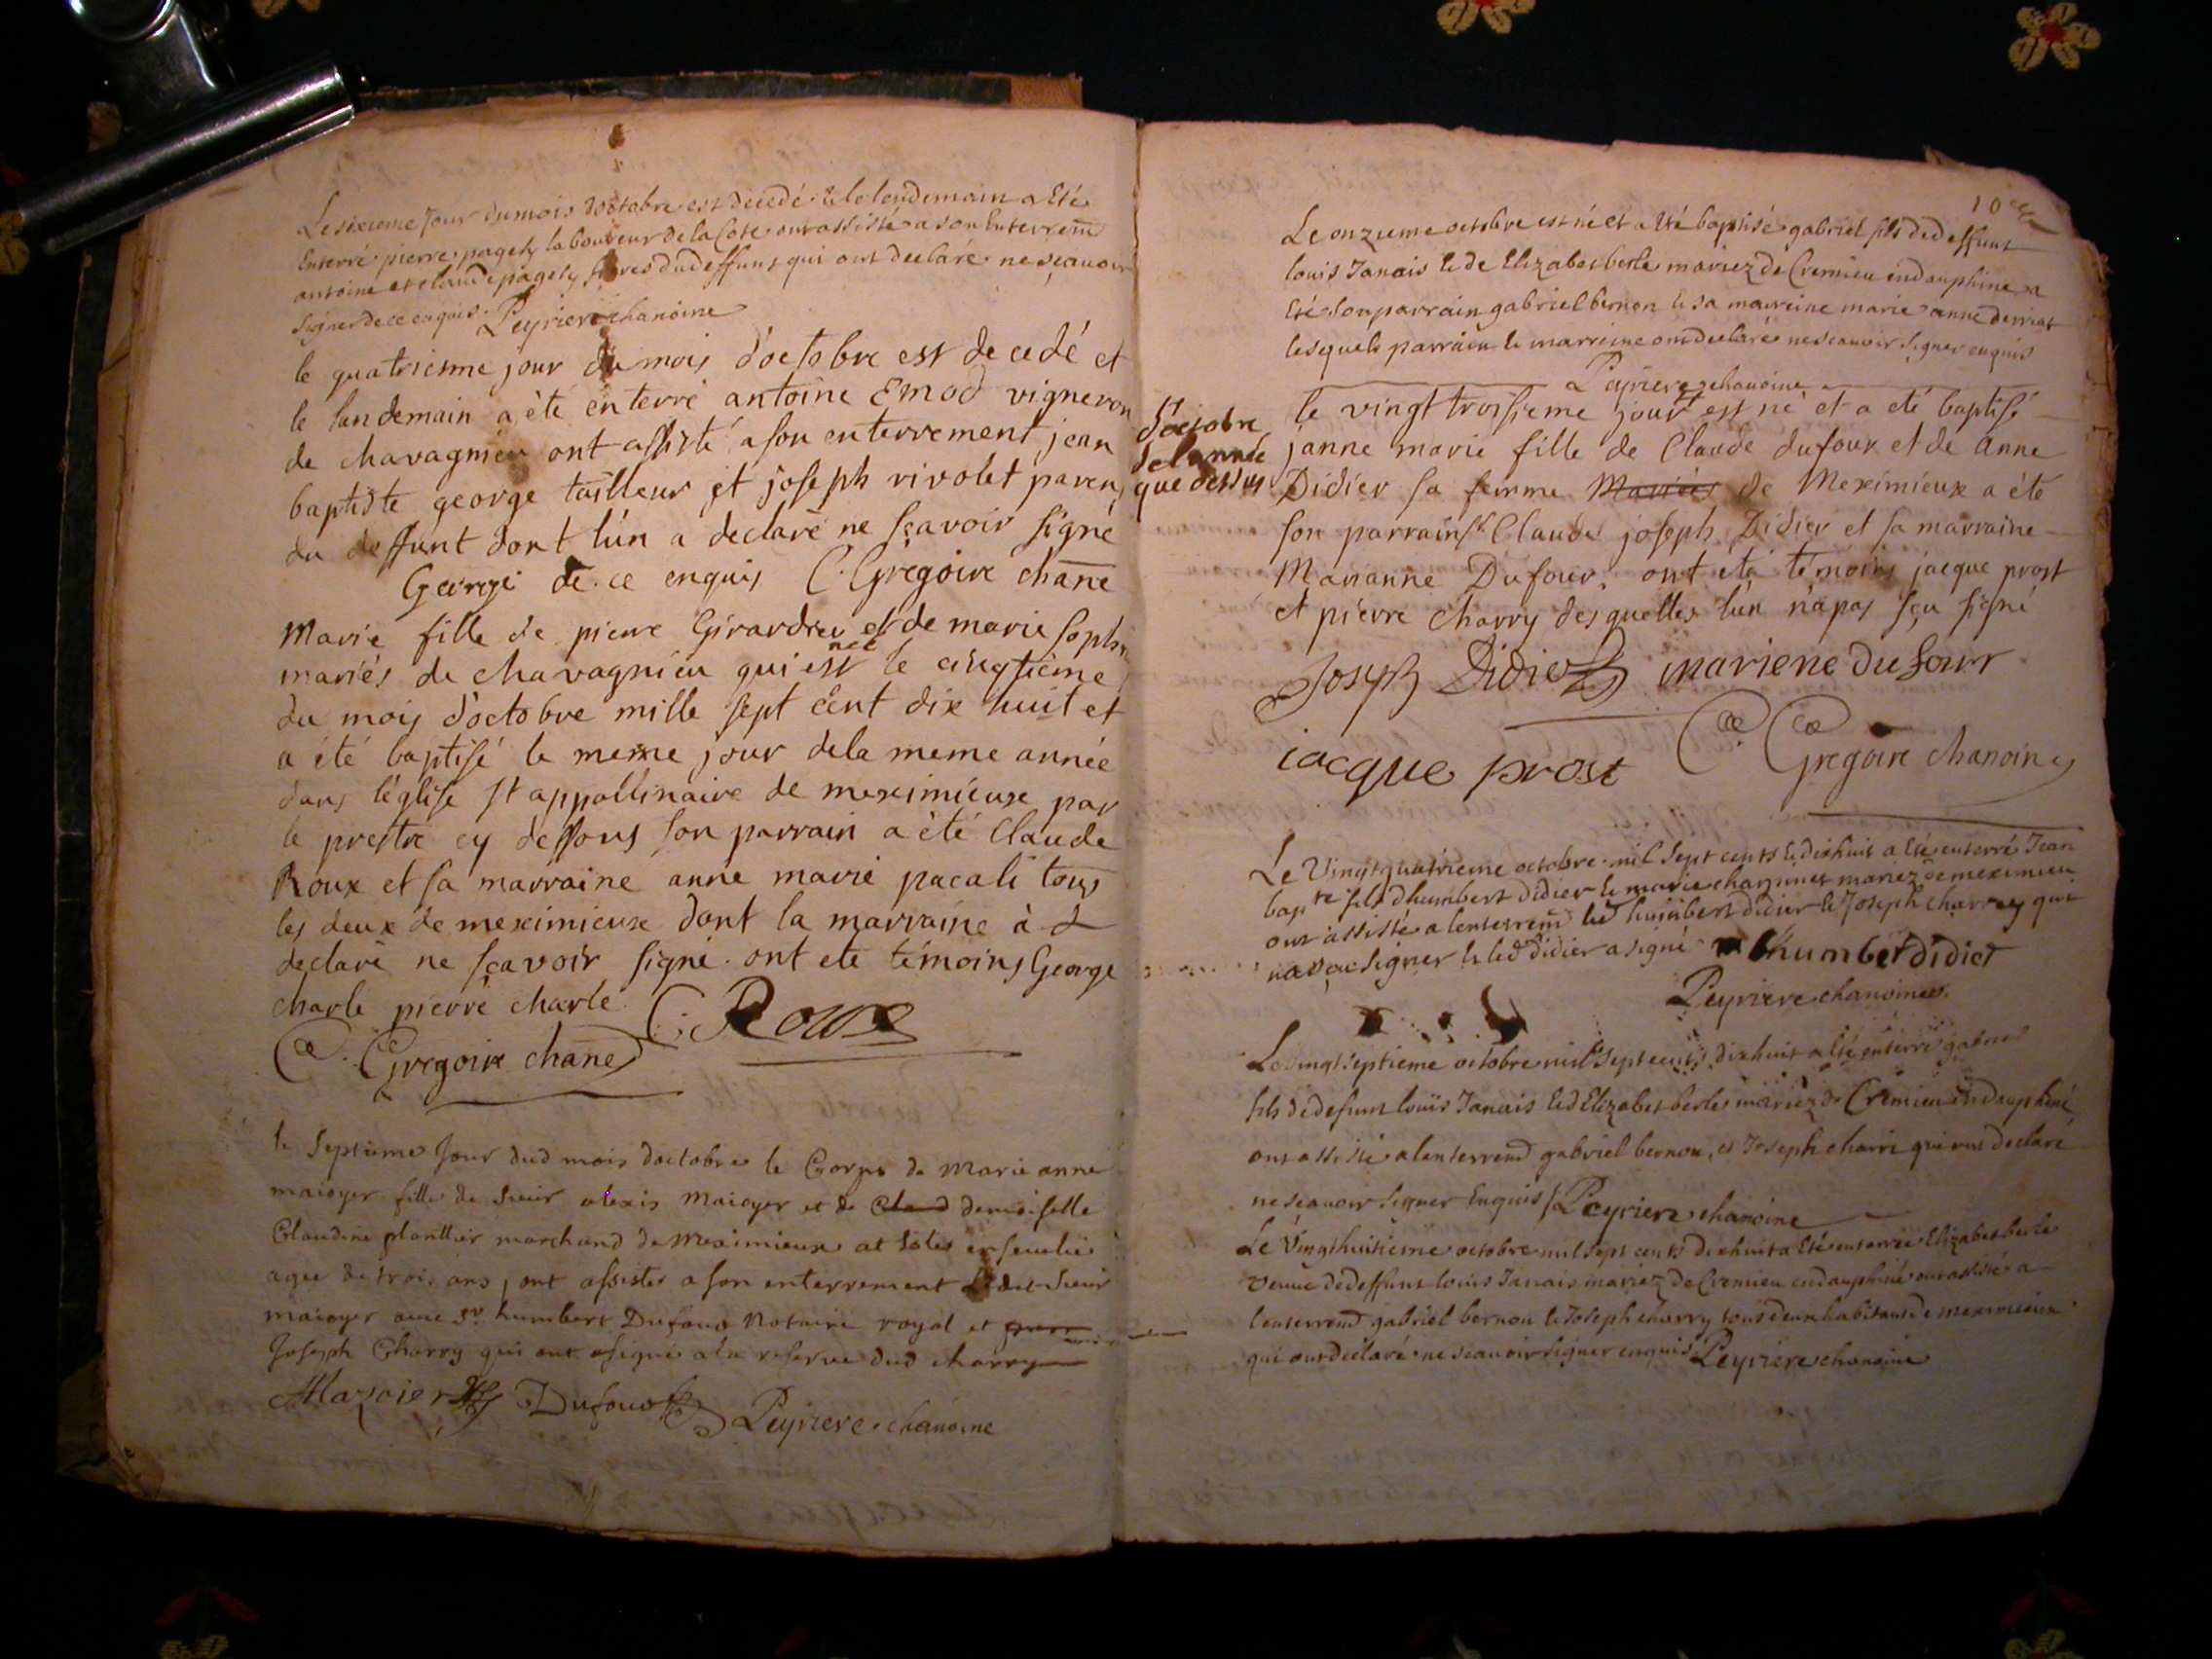 Le sixieme Jour du mois doctobre est decedé & le lendemain a Eté
Enterré pierre pagety laboureur de la Cote ont assisté a son Enterrem̄
antoine et claude pagety freres dud effunt qui ont declaré ne sçauoir
signer de ce enquis. Peyriere chanoine
le quatriesme jour du mois d'octobre est decedé et
le landemain a été enterré antoine Emod vigneron
de chavagnieu ont assisté a son enterrement jean
baptiste george tailleur et joseph rivolet paren
du deffunt dont l'un a declaré ne sçavoir signé
George de ce enquis C. Gregoire chane
Marie fille de pierre Girardier et de marie
née
mariés de chavagnieu qui est le cinqtieme
du mois d'octobre mille sept cent dix huit et
a été baptisé le meme jour de la meme année
dans l'église st appollinaire de meximieux par
le prestre cy dessous son parrain a été Claude
Roux et sa marraine anne marie pacali tous
les deux de meximieux dont la marraine à
declaré ne sçavoir signé. ont eté témoins George
charle pierre charle. C. Roux
C. Gregoire chane
le Septieme Jour dud mois doctobre le Corps de Marie anne
maioyer fille de sieur alexis Maioyer et de Claud demoiselle
Claudine plantier marchand de Meximieux at estes ensevelie
agee de trois ans, ont assistes a son enterrement Ledit sieur
maioyer avec sr humbert Dufour Notaire royal et
Joseph Charry qui ont signé a la reserve dud charry
Mazoier Dufour Peyriere chanoine
10
Le onzieme octobre est né et a Eté baptisé gabriel fils de deffunt
louis Janais & de Elizabet berle mariez de Cremieu en dauphine a
Eté son parrain gabriel bernon & sa marreine marie anne
lesquels parrain & marreine ont declaré ne scauoir signer enquis
Peyriere chanoine
le vingt troisieme jour est né et a eté baptisé
d'octobre
de l'année
que dessus
janne marie fille de Claude dufour et de Anne
Didier sa femme Mariés de Meximieux a été
son parrain sr Claude joseph Didier et sa marraine
Marianne Dufour, ont eté témoins jacque prost
et pierre charry desquelles l'un n'a pas sçu signé
Joseph Didier mariene dufour
iacque prost C. Gregoire chanoine
Le Vingt quatrieme octobre mil sept cents & dixhuit a Eté enterré Jean
bapte fils dhumbert didier & marie mariez de meximieu
ont assisté a lenterrem̄ led humbert didier & Joseph charrey qui
na sçu signer & led didier a signé humbert didier
Peyriere chanoine
Le vingt septieme octobre mil sept cents dixhuit a Eté enterré gabriel
fils de defunt louis Janais & d Elizabet berle mariez de Cremieu en dauphiné
ont assisté a lenterrem̄ gabriel bernon, et Joseph charri qui ont declaré
ne scauoir signer Enquis Peyriere chanoine
Le Vingt huitieme octobre mil sept cents dixhuit a Eté enterrée Elizabet berle
veuue de deffunt louis Janais mariez de Cremieu en dauphiné ont assisté a
lenterrem̄ gabriel bernon & Joseph charry tous deux habitants de meximieux
qui ont declaré ne scauoir signer enquis Peyriere chanoine